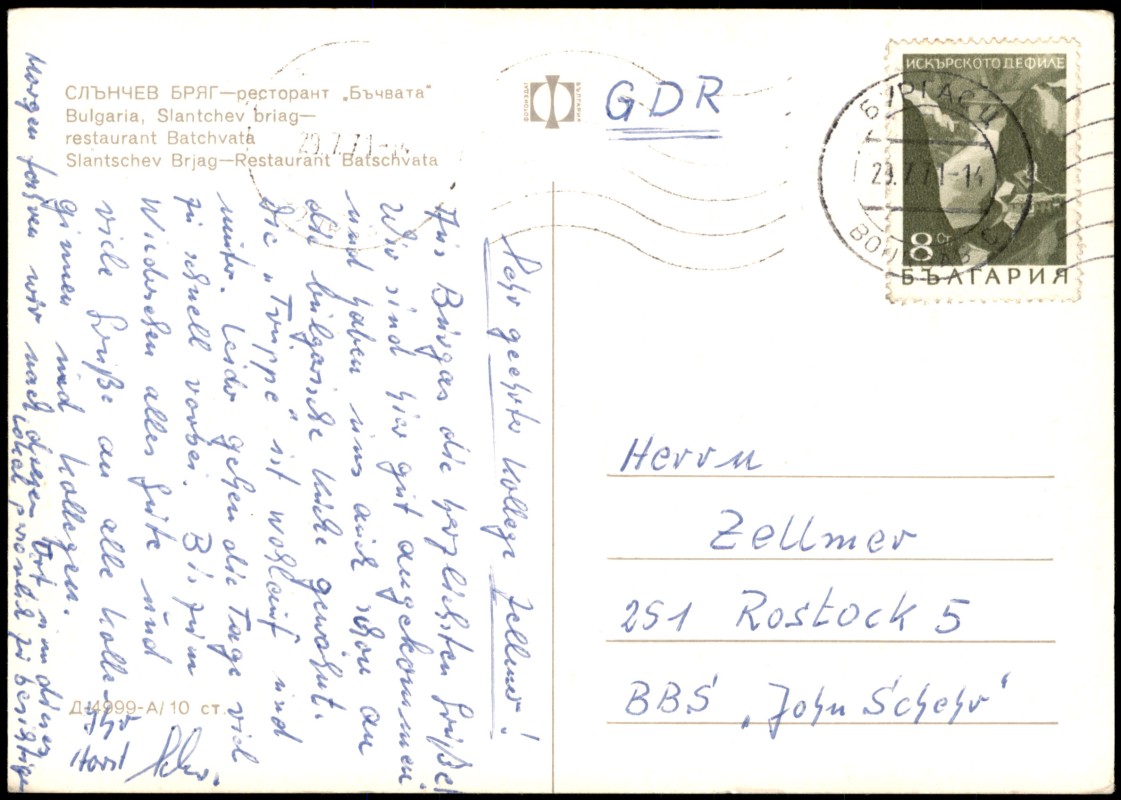 СЛЪНЧЕВ БРЯГ—ресторант „Бъчвата“
Bulgaria, Slantchev briag—
restaurant Batchvata
Slantschev Brjag—Restaurant Batschvata
GDR
ИСКЪРСКОТО ДЕФИЛЕ
8 Ст
БЪЛГАРИЯ
29.7.71-14
29.7.71-14
Sehr geehrter Kollege Zellmer!
Aus Burgas die herzlichsten Grüße!
Wir sind hier gut angekommen
und haben uns auch schon an
die bulgarische Küche gewöhnt.
Die „Truppe“ ist wohlauf und
munter. Leider gehen die Tage viel
zu schnell vorbei. Bis zum
Wiedersehen alles Gute und
viele Grüße an alle Kolle-
ginnen und Kollegen.
Ihr
Horst
Morgen fahren wir nach diesem Ort um dieses
Lokal privat zu besichtigen
Herrn
Zellmer
251 Rostock 5
BBS „John Schehr“
Д-14999-А/10 ст.